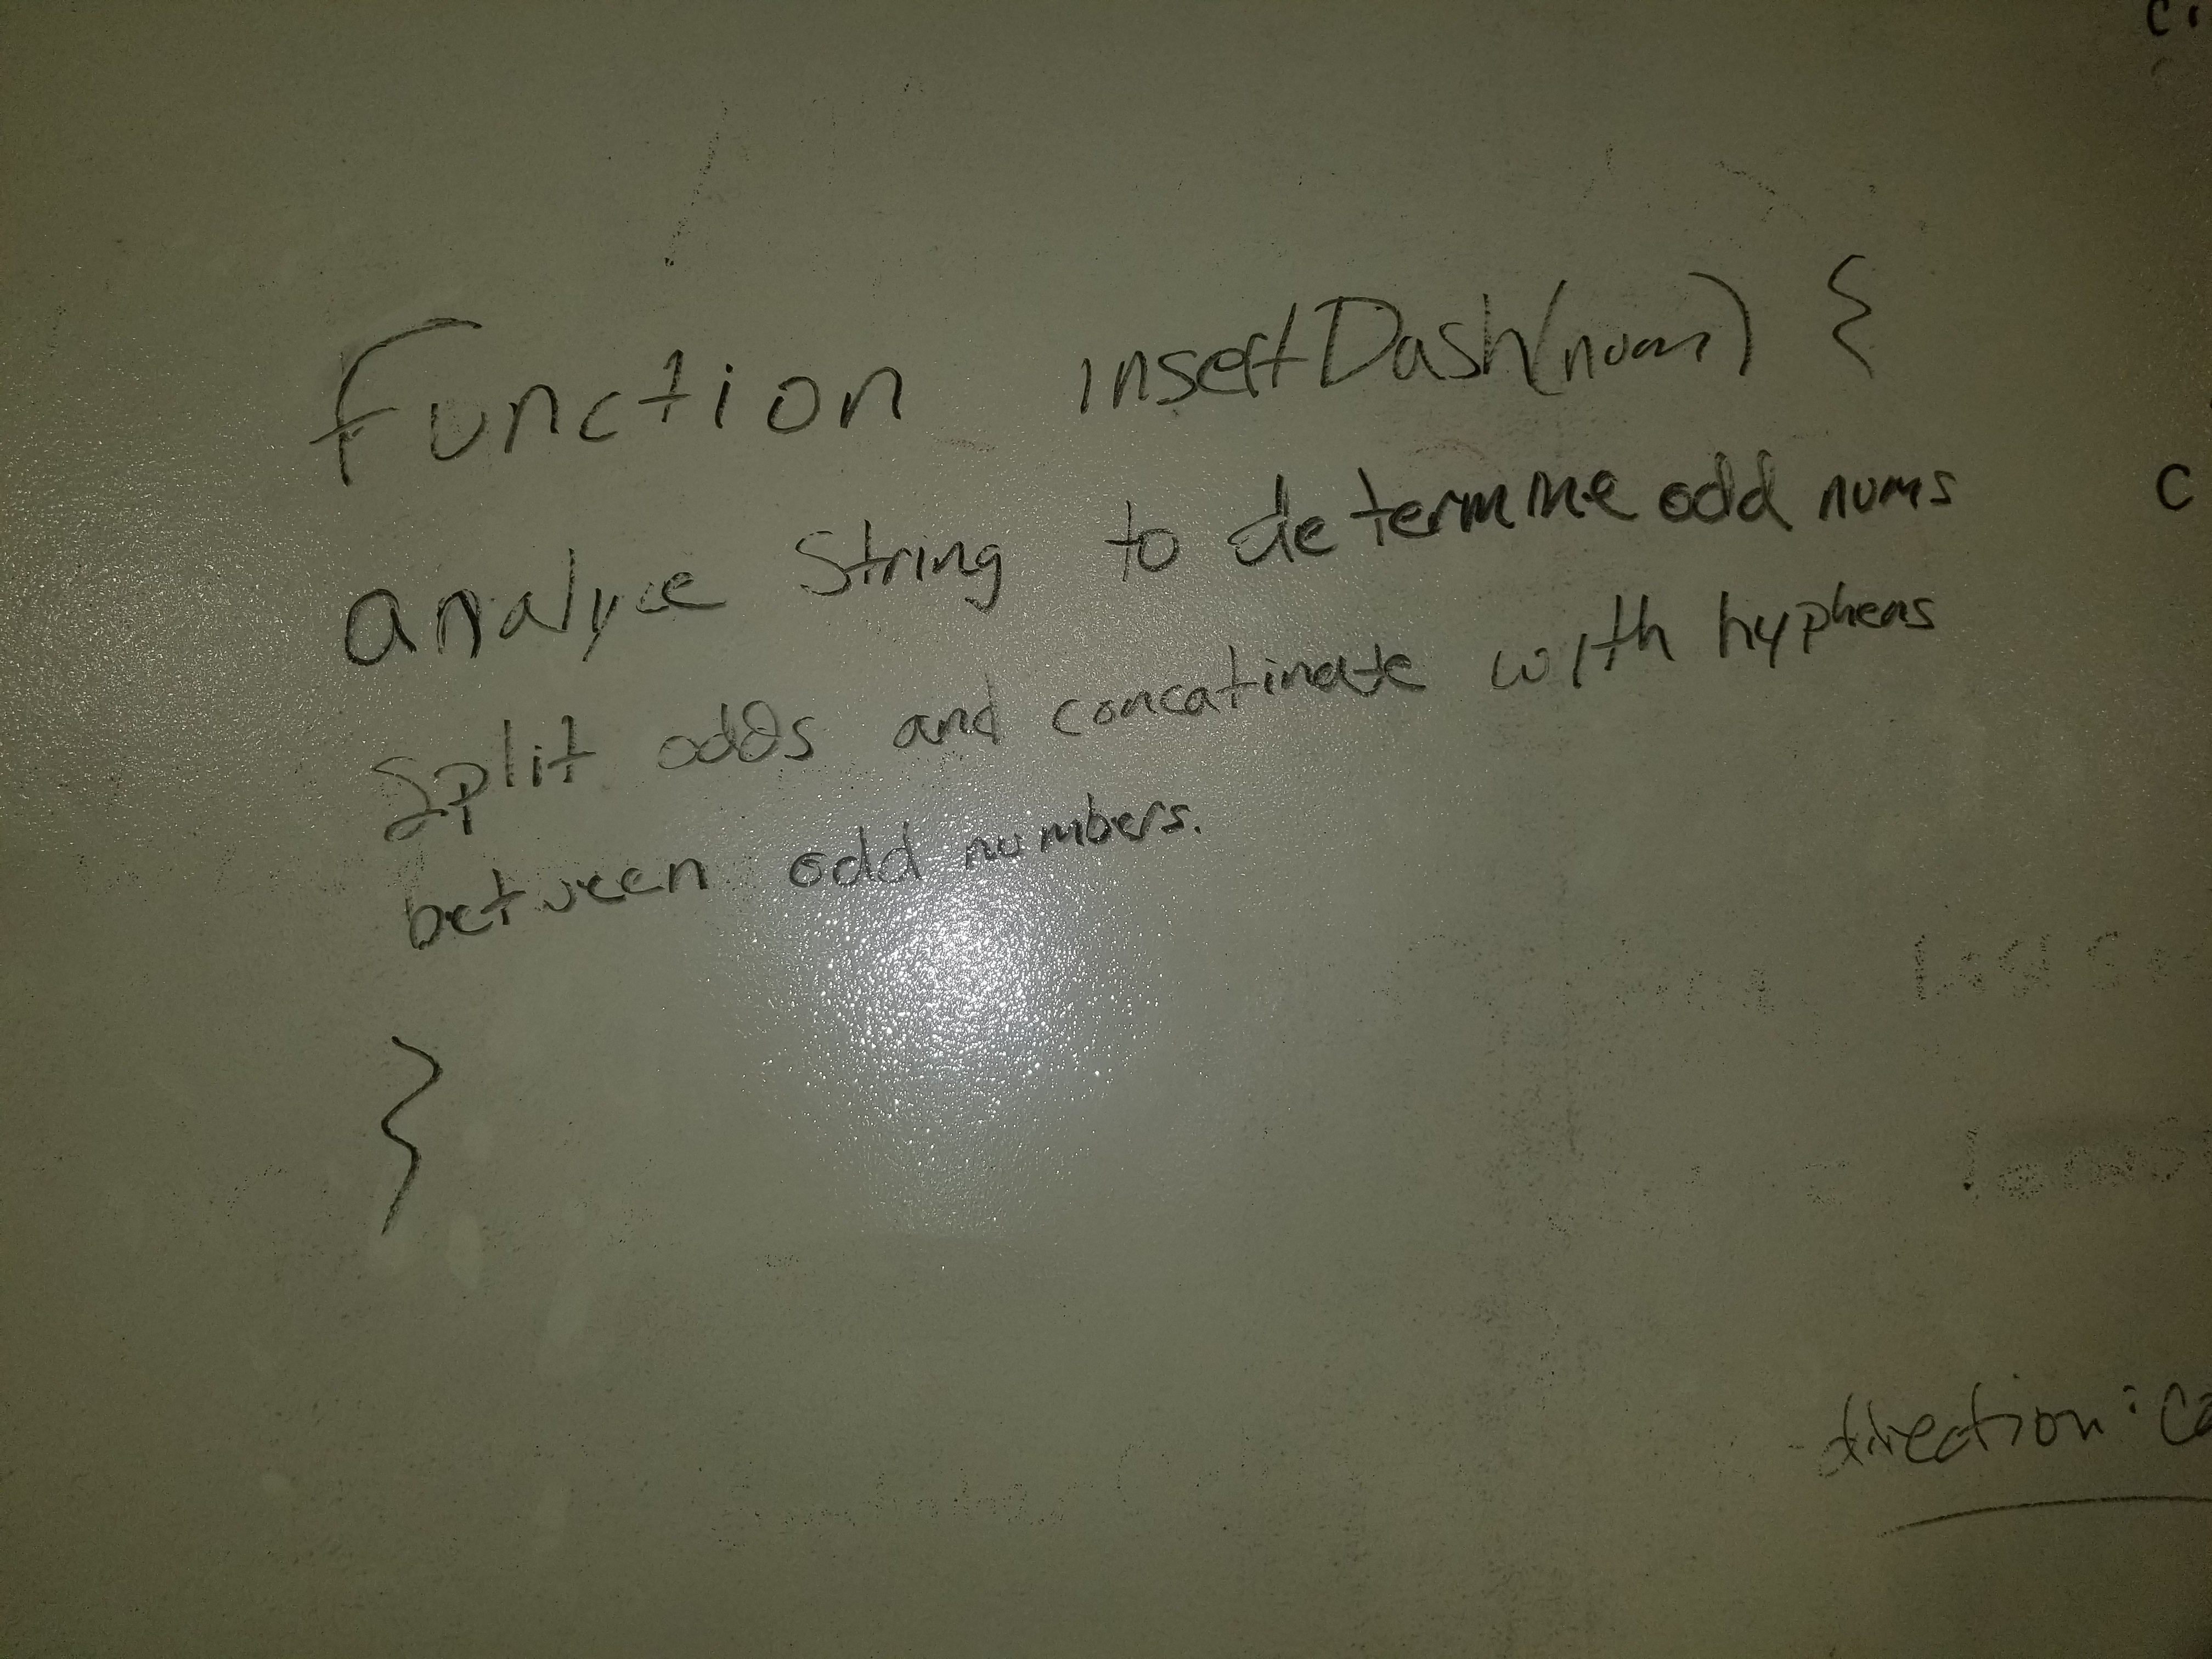 Function insertDash(num) {
analyze String to determine odd nums
Split odds and concatinate with hyphens
between odd numbers.
}
direction: